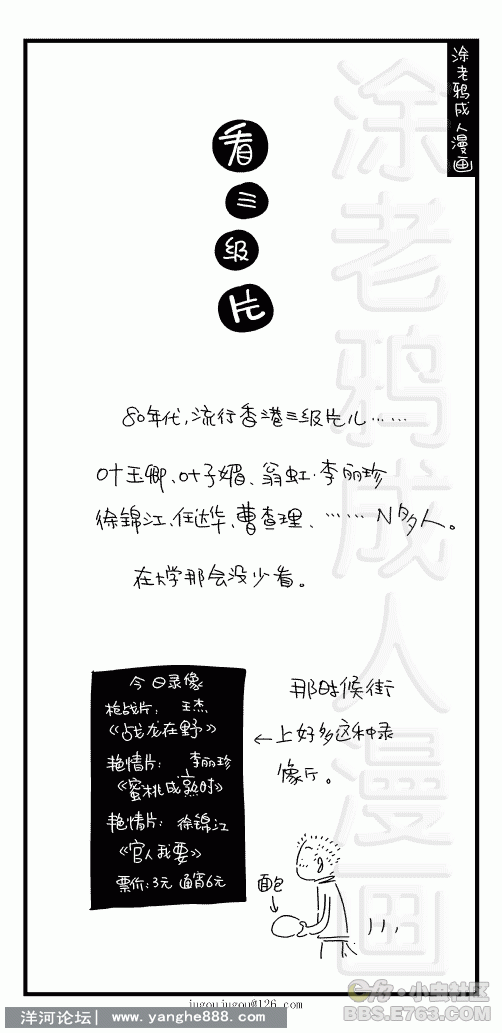 涂老鸦成人漫画
涂老鸦成人漫画
看三级片
80年代,流行香港三级片儿……
叶玉卿、叶子媚、翁虹·李丽珍
徐锦江、任达华、曹查理、……N多人。
在大学那会没少看。
今日录像
枪战片: 王杰
《战龙在野》
艳情片: 李丽珍
《蜜桃成熟时》
艳情片: 徐锦江
《官人我要》
票价:3元 通宵6元
那时候街
←上好多这种录
像厅。
面包
jugoujugou@126.com
洋河论坛| www.yanghe888.com
小虫社区
BBS.E763.COM